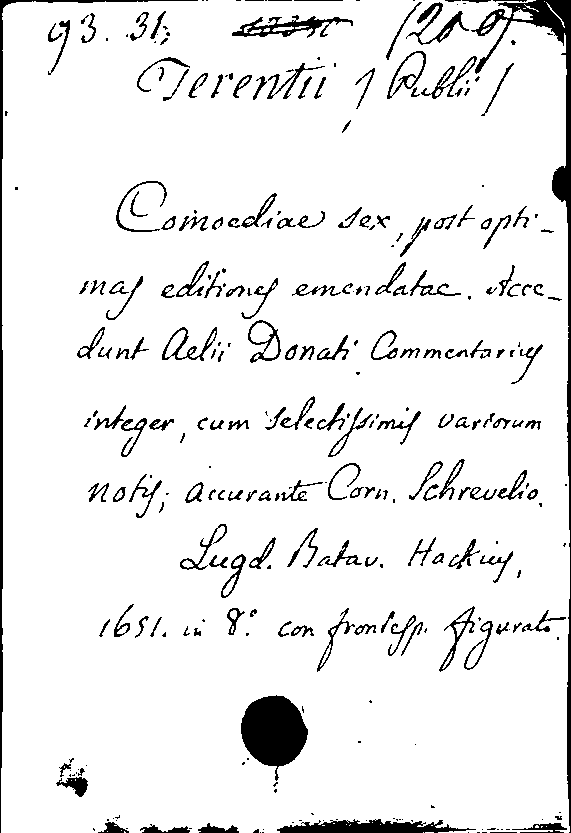 93. 31; (200).
Terentii / Publii /
Comoediae sex, post opti-
mas editiones emendatae. Acce-
dunt Aelii Donati Commentarius
integer, cum selectissimis variorum
notis; accurante Corn. Schrevelio.
Lugd. Batav. Hackius,
1651. in 8.º con frontesp. figurato.